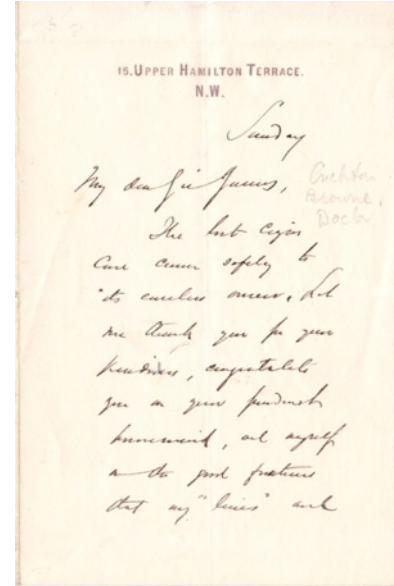 15. UPPER HAMILTON TERRACE.
N.W.
Sunday
My dear Sir James,
Crichton
Browne,
Doctor
The lost cigar
case came safely to
its careless owner. Let
me thank you for your
kindness, congratulate
you on your
, and myself
on the good fortune
that my "lines" and